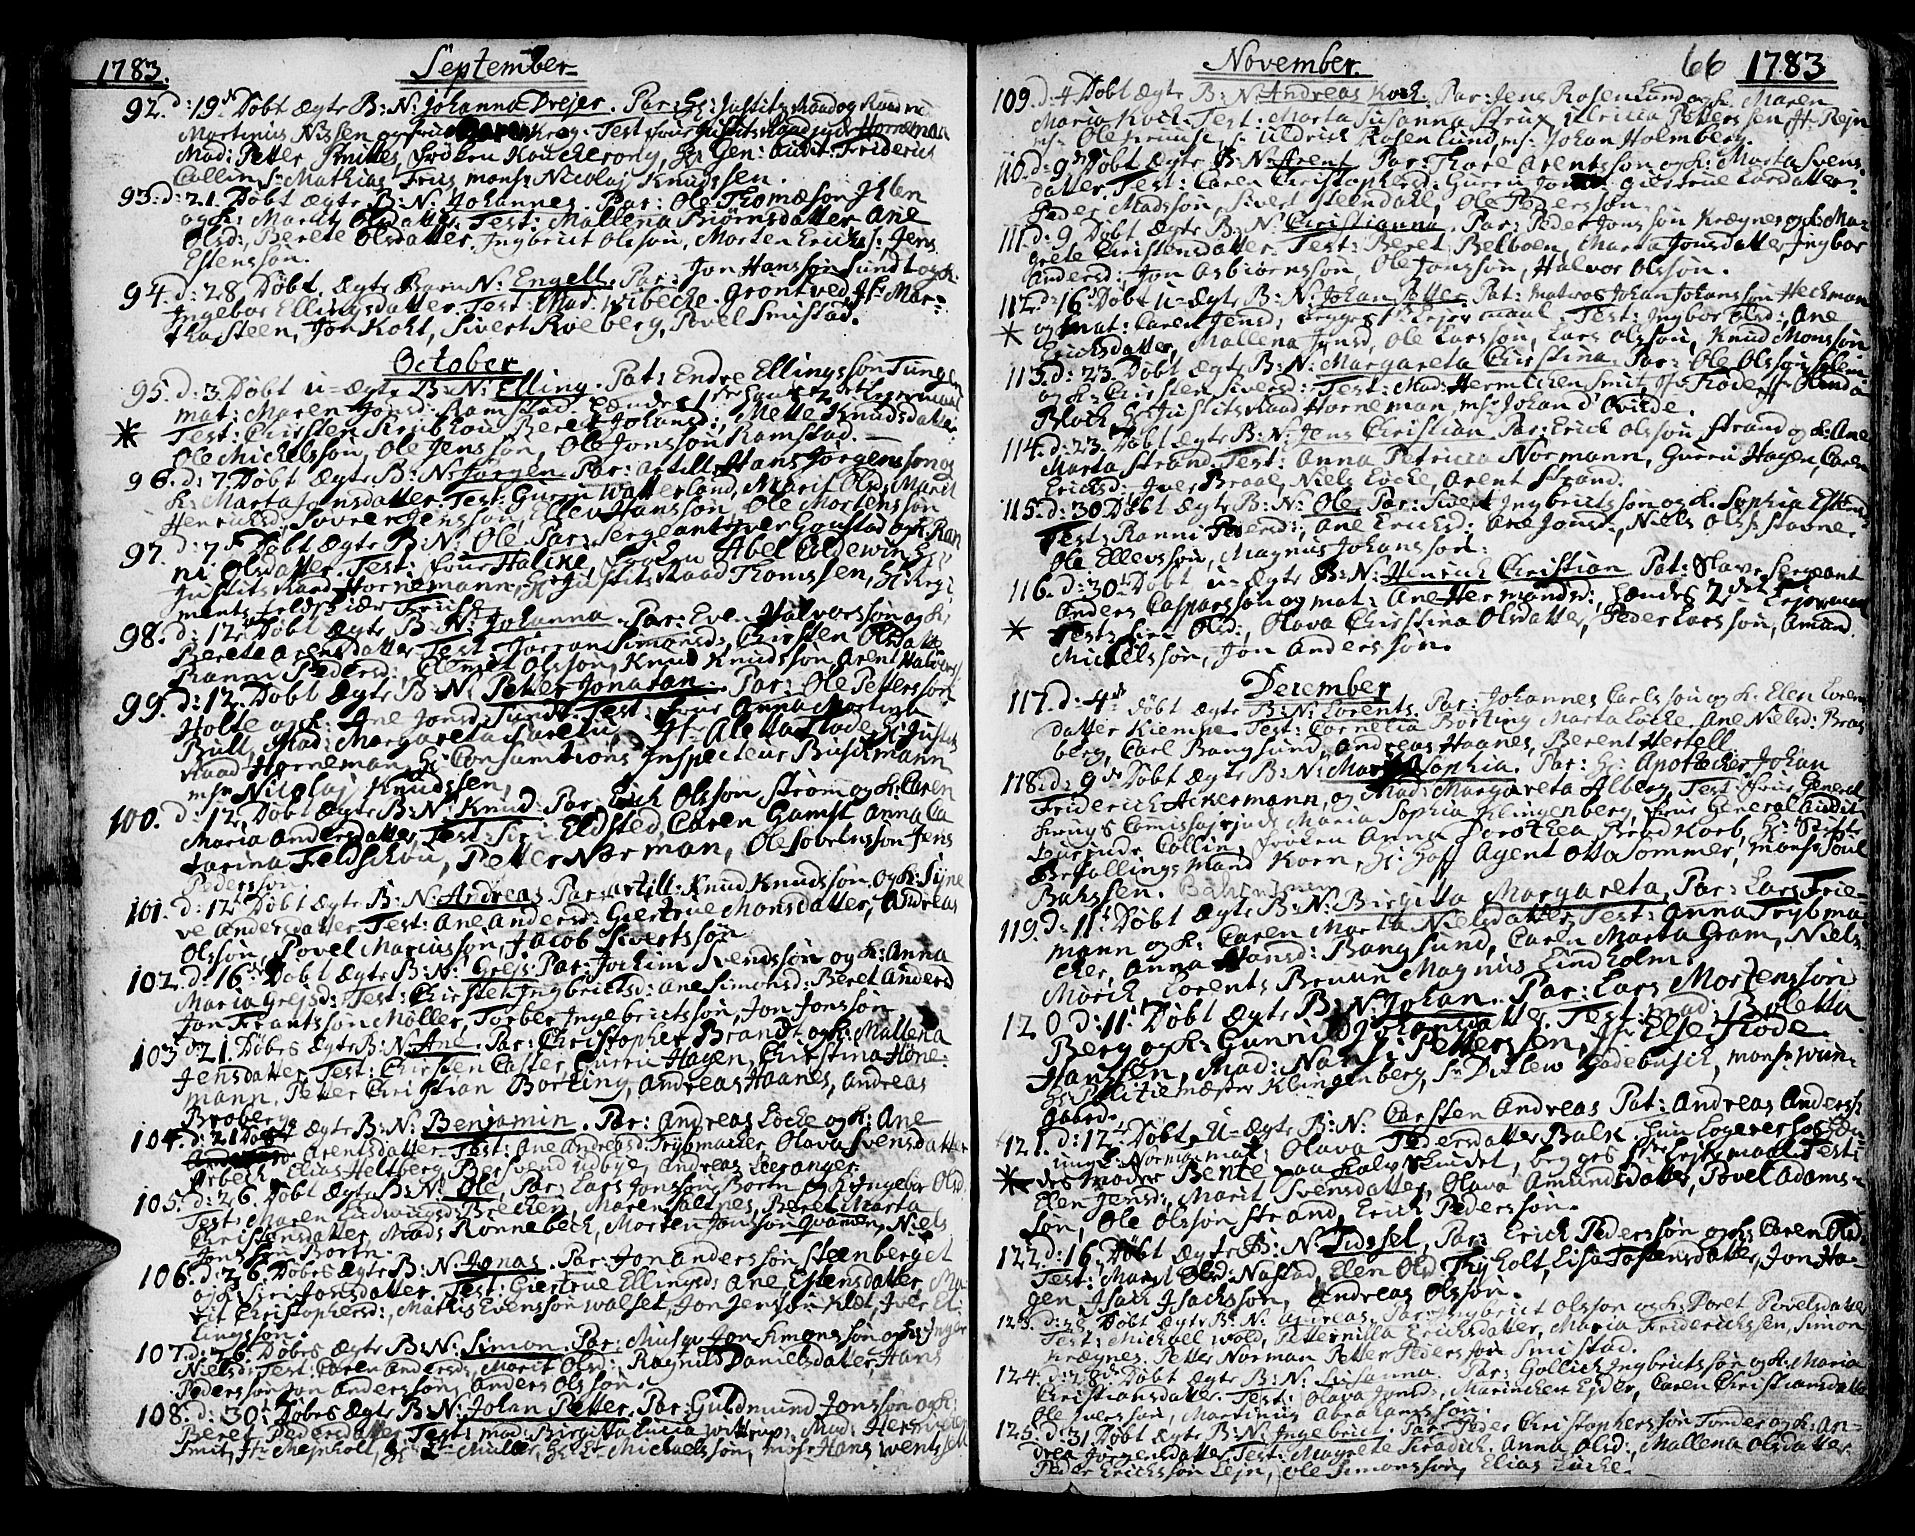 1783.
September
92. d: 19de Døbt Ægte B: N: Johanna Drejer. Par: Hr: Justitz Raad og Raadm:
Martinus Nissen og
Mad: Petter Smittes, Frøken Kouckeron, Hr Gen: Audit: Friderich
Collin, Sr Mathias Friis monsr Nicolaj Knudssen.
93. d: 21. Døbt Ægte B: N: Johannes. Par: Ole Thomæsøn
og K: Marit Olsdatter. Test: Mallena Biørnsdatter Ane
Olsd:, Berete Olsdatter, Ingbrict Olssøn, Morten Erichs: Jens
Estenssøn.
94. d: 28, Døbt, Ægte Barn N: Engell. Par: Jon Hanssøn Sundt og K:
Ingebor Ellingsdatter. Test: Mad: Wibecke Grontved Jfr Mar-
tha Steen, Jon Koht, Sivert Røeberg, Povel Smistad.
October
95. d: 3. Døbt u-Ægte B: N: Elling. Pat: Endre Ellingssøn Tungen
mat: Maren Jonsd: Ramstad.
* Test: Chirsten Beret Johansd:, Mette Knudsdatter
Ole Michelssøn, Ole Jenssøn, Ole Jonssøn Ramstad.
96. d: 7. Døbt Ægte B: N: Jørgen. Par: Artill: Hans Jørgenssøn og
K: Marta Jonsdatter. Test: Gurru Watterland, Marit Olsd: Marit
Henricksd: Sovren Jenssøn, Ellev Hanssøn, Ole Mortenssøn
97. d: 7de Døbt Ægte B: N: Ole. Par: Sergeant Iver Gaustad og K: Ran
ni Olsdatter. Test: Frue Halcke, Frøken Abel Coldewin, Hr
Justitsraad Hornemann, Hr Justitsraad Thomssen, Hr Regi-
ments Feldskiær Friis.
98. d: 12te Døbt Ægte B: N: Johanna. Par: Eve. Halvorssøn og K:
Berete Arensdatter. Test: Simonsd: Chirsten Olsdatter
Ranni Pedersd:, Clemet Olssøn, Knud Knudssøn Arent Halvorss:
99. d: 12. Døbt Ægte B: N: Petter Jonatan. Par: Ole Petterssøn
Holte og K: Ane Jonsd: Sundt. Test: Frue Anna Martina
Bull, Mad: Margareta Jfr Aletta Flode, Hr Justitz
Raad Horneman, Hr Consumtions Inspecteur Buschmann
msr Nicolaj Knudssen,
100. d: 12te Døbt Ægte B: N: Knud. Par: Erich Olssøn Strøm og K: Caren
Maria Andersdatter, Test: Siri Eldsted, Caren Gamst Anna Ca
tarina Feldschou, Petter Norman, Ole Sovrenssøn Jens
Pederssøn.
101. d: 12te Døbt Ægte B: N: Andreas. Par: Artill: Knud Knudssøn og K: Syne
ve Andersdatter. Test: Ane Andersd: Giertrue Monsdatter, Andreas
Olssøn, Povel Marcussøn, Jacob Sivertssøn
102. d: 16de Døbt Ægte B: N: Grejs. Par: Jochim Svendssøn og K: Anna
Maria Grejsd: Test: Chirsten Ingbrictsd: Ane Simonsd: Beret Andersd
Jon Frantssøn Møller, Torber Ingebrictssøn, Jon Jonssøn
103 d 21. Døbes Ægte B: N: Ane. Par: Christopher Brandt og K: Mallena
Jensdatter. Test: Chirsten Caster, Gurru Hagen, Chirstina Høne-
mann, Petter Christian Borting, Andreas Haanes, Andreas
Broberg
104. d: 21 Døbt Ægte B: N: Benjamin. Par: Andreas Locke og K: Ane
Arentsdatter. Test: Ane Andreasd: Trybmacker Olava Svensdatter
Elias Heltberg, Bersvend Udbye, Andreas Leranger.
105. d: 26. Døbt Ægte B: N: Ole, Par: Lars Jonssøn Bortn og K: Ingebor Olsd:
Test: Maren Brecken, Maren Saltnes, Beret Marta
Christensdatter, Mads Rønnebeck, Morten Jonssøn Qvamen, Niels
Jonssøn Bortn.
106. d: 26. Døbes Ægte B: N: Jonas. Par: Jon Anderssøn Steenberget
og K: Siri Jonsdatter. Test: Giertrue Ellingsd: Ane Estensdatter Ma-
rit Christophersd:, Mattis Evenssøn Walset, Jon Jenssøn Klet, Iver El-
lingssøn.
107. d: 26. Døbes Ægte B: N: Simon. Par: Musqr Jon Simonssøn og K: Inger
Nielsd: Test: Caren Andersd: Marit Olsd: Ragnild Danielsdatter, Hans
Pederssøn Jon Anderssøn, Anders Olssøn.
108. d: 30te Døbes Ægte B: N: Johan Petter. Par: Guldmund Jonssøn og K:
Beret Pedersdatter Test: mad: Birgitta Lucia Wittrup, Mad: Hermichen
Smit, Jfr Mejnholt, Hr Lt Muller, Hr Lt Michaelssøn, monsr Hans Wentzell
November.
66 1783
109. d. 4 Døbt Ægte B: N: Andreas Kock. Par: Jens Rosenlund og K: Maren
Maria Kock. Test: Marta Susanna Strux Ulricia Petterssen Jfr Rejn
msr Ole Kruuse, sr Uldrich Rosenlund, msr Johan Holmberg.
110. d: 9de Døbt Ægte B: N: Arent. Par: Thore Arentssøn og K: Marta Svens-
datter Test: Caren Christophersd: Gurru Jonsd: Giertrue Larsdatter
Peder Madssøn, Sivert Steendahl, Ole Pederssøn.
111. d: 9. Døbt Ægte B: N: Christianna. Par: Peder Jonssøn Krægnes og K: Ma-
grete Christensdatter. Test: Beret Belboen, Marta Jonsdatter, Ingbor
Andersd: Jon Asbiørnssøn, Ole Jonssøn, Halvor Olssøn.
112. d: 16de Døbt u-Ægte B: N: Johan Petter. Pat: Matros Johan Johanssøn Heckman
* og mat: Caren Jensd: begges 1te Lejermaal. Test: Ingbor Olsd:, Ane
Ericksdatter, Mallena Jonsd, Ole Larssøn, Lars Olssøn, Knud Monssøn
113. d: 23. Døbt Ægte B: N: Margareta Chirstina. Par: Ole Olssøn Solem
og K: Chirsten Siversd: Test: Mad: Hermichen Smit, Jfr Flode, Jfr Randa
Block, Hr Justitsraad Horneman, msr Johan d'Ovilde.
114. d: 23. Døbt Ægte B: N: Jens Christian. Par: Erick Olssøn Strand og K: Ane
Marta Strand. Test: Anna Petricia Normann, Gurru Hagen, Caren
Ericksd: Iver Braae, Niels Løcke, Arent Strand.
115. d: 30 Døbt Ægte B: N: Ole Par: Sivert Ingbrictssøn og K: Sophia Estens
Test: Ranni Pedersd:, Ane Ericksd: Ane Jonsd:, Niels Ols: Stavne.
Ole Ellevssøn, Magnus Johanssøn.
116. d: 30te Døbt u-Ægte B: N: Henrick Christian. Pat: Slave Sergeant
Anders Casparssøn og mat: Ane Hermandsd: hendes 2det Lejermaal
* Test: Siri Olsd:, Olava Christina Olsdatter, Peder Larssøn, Amund
Mickelssøn, Jon Anderssøn.
December
117. d: 4de døbt Ægte B: N: Lorents. Par: Johannes Carlssøn og K: Elen Loren
datter Kiempe. Test: Cornelia Borting Marta Løcke, Ane Nielsd: Braas
berg, Carl Bangsund, Andreas Haanes, Berent Hertell
118 d: 9de Døbt Ægte B: N: Maria Sophia. Par: Hr: Apothecker Johan
Friderich Ackermann, og Mad: Margareta Alberg, Test: Frue General
Krigs Commissairinde Maria Sophia Klingenberg, Frue General Audit-
teurinde Collin, Frøken Anna Dorothea Bradkorb, Hr: Stifts
Befallings mand Korn, Hr: Hoff Agent Otto Sommer, monsr Poul
Bahssen.
119. d: 11te Døbt Ægte B: N: Birgitta Margareta, Par: Lars Frie-
mann og K: Caren Marta Nielsdatter, Test: Anna Trybma-
cher, Anna Hansd: Bangsund, Caren Marta Gram, Niels
Morich Lorents Bruun Magnus Lindholm.
120 d: 11te Døbt Ægte B: N: Johan. Par: Lars Mortenssøn
Berg og K: Gunnild Johansdatter. Test: mad: Boletta
Hanssen, Mad: Petterssen, Jfr Else Flode
Hr: Politiemæster Klingenberg, Sr Ditlew Gadebusch, monsr Win-
gaard.
121. d: 12te Døbt U-Ægte B: N: Carsten Andreas Pat: Andreas Anders:
mat: Olava Pedersdatter Balk. hun Logerer hos
* des moder Bente paa Kalvskindet, begges 1te Lejermaal Test:
Elen Jensd:, Marit Svensdatter, Olava Amundsdatter, Povel Adams-
søn, Ole Olssøn Strand, Erick Pederssøn.
122. d: 16. Døbt Ægte B: N: Sidssel, Par: Erick Pederssøn og K: Caren
Test: Marit Olsd: Nastad, Elen Olsd: Thyholt, Lisa Tostensdatter, Jon Ha-
gen Isach Isachssøn, Andreas Olssøn.
123. d: 26 Døbt Ægte B: N: Andreas. Par: Ingbrict Olssøn og K: Doret Povelsdatter
Test: Michaell Wold, Petternilla Ericksdatter, Maria Friderickssen, Simon
Krægnes. Petter Norman Petter Pederssøn Smistad.
124. d: 28de Døbt Ægte B: N: Susanna. Par: Gollick Ingbrictssøn og K: Maria
Christiansdatter. Test: Olava Jonsd:, Marinchen Ejder, Caren Christiansdatter
Ole Iverssøn, Martinus Abrahamssøn.
125. d: 31 Døbt Ægte B: N: Ingebrict. Par: Peder Christopherssøn Tønder og K: An-
drea Jørgensdatter. Test: Magrete Anna Olsd:, Mallena Olsdatter,
Peder Erickssøn Lejn, Ole Simonssøn, Elias Lücke.